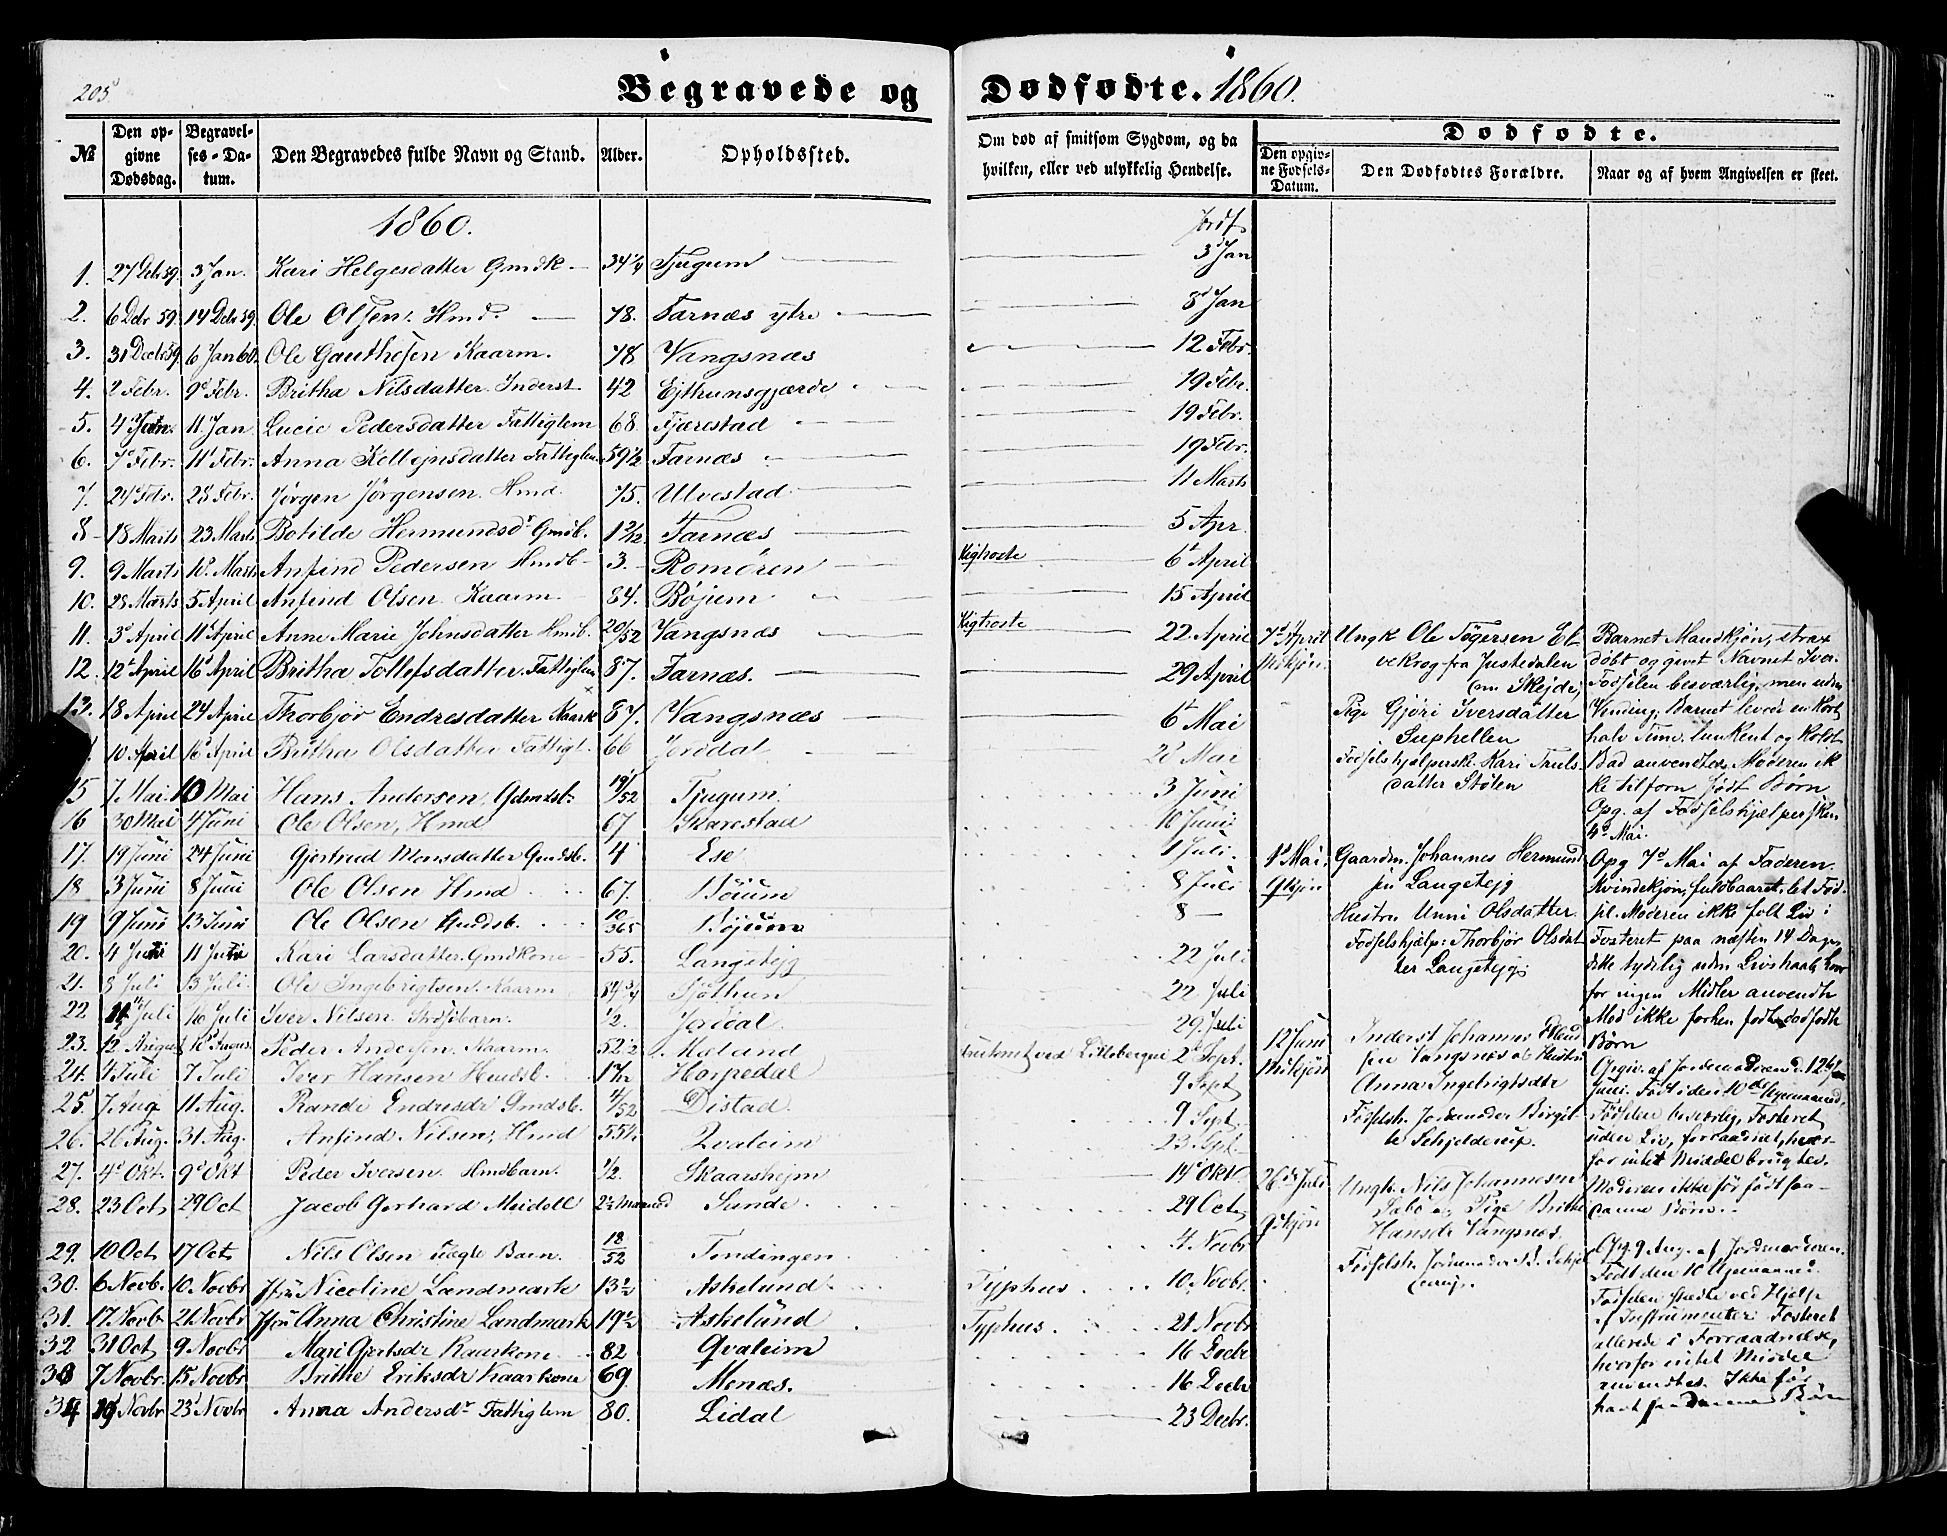 205
Begravede og Dødfødte. 1860.
№ Den opgivne Dødsdag. Begravelses-Datum. Den Begravedes fulde Navn og Stand. Alder. Opholdssted. Om død af smitsom Sygdom, og da hvilken, eller ved ulykkelig Hendelse.
Dødfødte.
Den opgivne Fødsels-Datum. Den Dødfødtes Forældre. Naar og af hvem Angivelsen er skeet.
1860. Jordf
1. 27 Debr 59. 3 Jan. Kari Helgesdatter Gmdk 34 1/4 Tjugum 3 Jan
2. 6 Debr 59. 14 Debr 59. Ole Olsen Hmd. 78. Farnæs ytre 8 Jan
3. 31 Decbr 59. 6 Jan 60. Ole Gauthesen Kaarm. 78 Vangsnæs 12 Febr.
4. 2 Febr. 9 Febr. Britha Nilsdatter Inderst 42 Ejthunsgjærde 19 Febr.
5. 4 Jan. 11 Jan Lucie Pedersdatter Fattiglem 68. Fjærestad 19 Febr.
6. 7 Febr. 11 Febr. Anna Kollejnsdatter Fattiglem 59 1/2 Farnæs 19 Febr.
7. 24 Febr. 28 Febr. Jørgen Jørgensen Hmd. 75. Ulvestad 11 Marts
8 18 Marts 23 Marts Botilde Hermundsdr Gmdb. 1 2/12 Farnæs 5 Apr.
9. 9 Marts 18 Marts Anfind Pedersen Hmdb 3. Romøren Kighoste 6 April
10. 28 Marts 5 April Anfind Olsen Kaarm 84. Bøjum 15 April
11. 3 April 11 April Anne Marie Johnsdatter Hmdb. 20/52 Vangsnæs Kighoste 22 April
12. 12 April 16 April Britha Tollefsdatter Fattiglem 87. Farnæs. 29 April
13. 18 April 24 April Thorbjør Endresdatter Kaark 87. Vangsnæs 6 Mai
10 April 16 April Britha Olsdatter Fattigl. 66 Jordal 28 Mai
15 7 Mai 10 Mai Hans Andersen, Gdmdsb. 19/52 Tjugum. 3 Juni
16 30 Mai 4 Juni Ole Olsen, Hmd 67 Skarestad 10 Juni
17. 19 Juni 24 Juni Gjertrud Monsdatter Gmdsb. 4 Ese 1 Juli.
18 3 Juni 8 Juni Ole Olsen Hmd 67. Bøium 8 Juli
19 9 Juni 13 Juni Ole Olsen Gmdsb. 10/365 Bøjum 8 —
20. 4 Juli 11 Juli Kari Larsdatter Gmdkone 55. Langetejg 22 Juli
21. 8 Juli 13 Juli. Ole Ingebrigtsen Kaarm 84 3/4 Sjøthun 22 Juli
22. 11 Juli 16 Juli Iver Nilsen 1/2. Jordal 29 Juli
23. 12 August 16 August Peder Andersen Kaarm. 52 1/2 Mæland 2 Sept.
24. 4 Juli 7 Juli Iver Hansen Hmdsb. Horpedal 9 Sept
25. 7 Aug 11 Aug. Randi Endresdr Gmdsb. 4/52 Distad. 9 Sept
26. 26 Aug. 31 Aug. Anfind Nilsen, Hmd 55 1/2 Qvaleim 23 Spt.
27. 4 Okt. 9 Okt Peder Iversen Hmdbarn. 1/2. Skaarshejm 14 Okt
28. 23 Oct. 29 Oct Jacob Gerhard Meidell 2 1/2 Maaned Sunde 29 Oct
29. 10 Oct 17 Oct Nils Olsen uægte Barn. 18/52 Tendingen 4 Novbr
30. 6 Novb. 10 Novbr Jfru Nicoline Landmark 13 1/2 Askelund Typhus 10 Novbr.
31. 17 Novbr 21 Novbr Jfru Anna Christine Landmark 19 1/2 Askelund Typhus 21 Novbr
32 31 Oct. 9 Novbr Mari Gjertsdr Kaarkone 82 Qvaleim 16 Decbr
33 7 Novbr. 15 Novbr Brithe Eriksdr Kaarkone 69. Menæs. 16 Decbr
34 19 Novbr 23 Novbr Anna Andersdr Fattiglem 80. Lidal 23 Decbr.
7 April Mdkjøn
Ungk Ole Tøgersen El
vekrog fra Justedalen
(nu Skejde)
Pige Gjøri Iversdatter
Suphellen
Fødselshjælpersk. Kari Truls
datter Stølen
Barnet Mandkjøn, strax
døbt og givet Navnet Iver.
Fødselen besværlig, men uden
Vending; Barnet levede en kort
halv Time. lunkent og koldt
Bad anvendtes. Moderen ik
ke tilforn født Børn
Opg. af Fødselshjælpersken
4 Mai.
1 Mai. Qkjøn
Gaardm. Johannes Hermund
sen Langetejg
Hustru Unni Olsdatter
Fødselshjælp: Thorbjør Olsdat
ter Langetejg
Opg 7 Mai af Faderen
Kvindekjøn, fuldbaaret, let Fød-
sel. Moderen ikke følt Liv i
Fosteret paa næsten 14 Dage,
dette tydelig uden Livshaab hvor
for ingen Midler anvendte
Mod ikke forhen født dødfødte
Børn
12 Juni Mdkjøn
Inderst Johannes Elend
sen Vangsnæs og Hustru
Anna Ingebrigtsdtr
Fødselsh. Jordemoder Birgit
te Schjelderup.
Opgiv. af Jordemoderen d. 12
Juni. Født i den 10de Ugemaaned,
Fødselen besværlig, Fosteret
uden Liv, forraadnet, hvor-
for intet Middel brugtes.
Moderen ikke før født saa-
danne Børn.
26 Juli Qkjøn
Ungk. Nils Johannesen
Sabø og Pige Brithe
Hansdr Vangsnæs
Fødselsh. Jordemoder B. Schjel
derup.
Opg. 9 Aug. af Jordemoderen.
Født den 10 Ugemaaned.
Fødselen skedte ved Hjelp
af Instrumenter. Fosteret
allerede i Forraadnelse,
hvorfor intet Middel
anvendtes. Ikke før
havt saadanne Børn